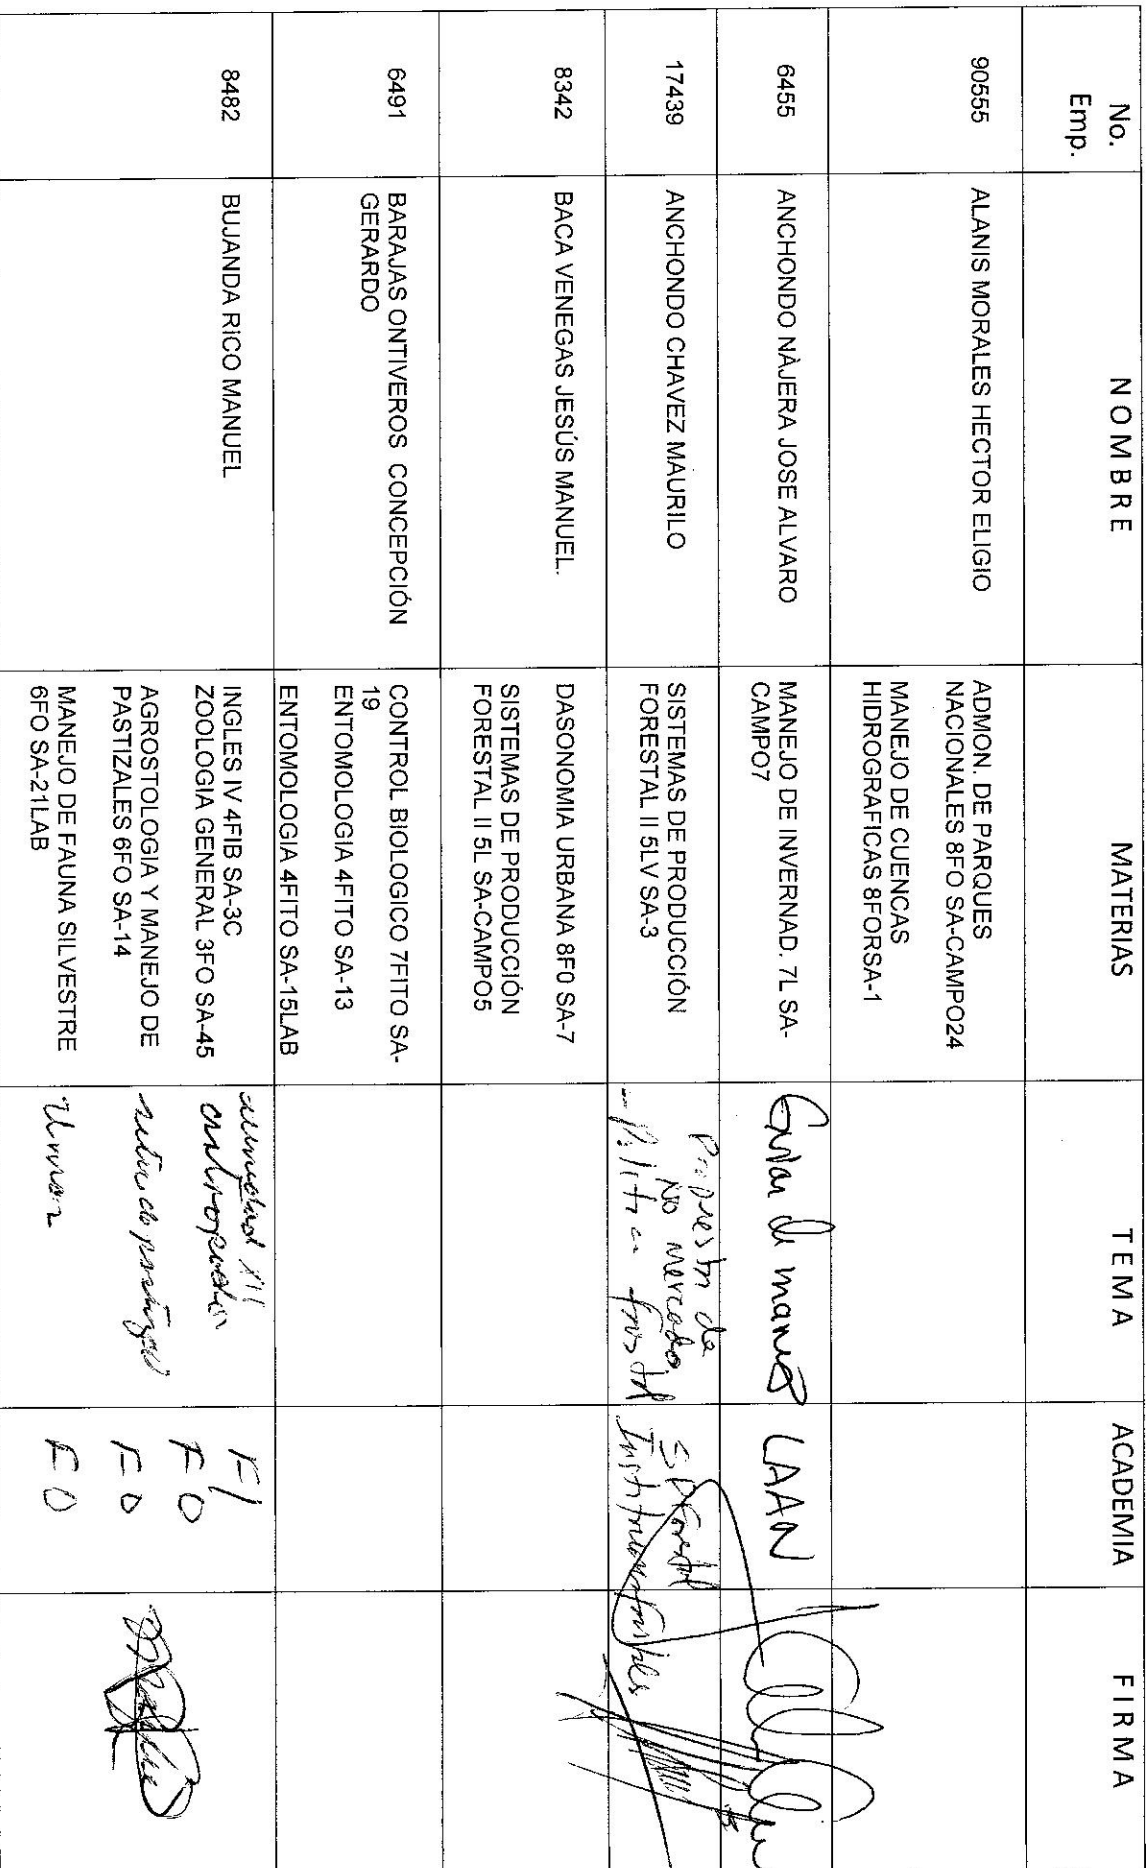 No. Emp.
NOMBRE
MATERIAS
TEMA
ACADEMIA
FIRMA
90555
ALANIS MORALES HECTOR ELIGIO
ADMON. DE PARQUES
NACIONALES 8FO SA-CAMPO24
MANEJO DE CUENCAS
HIDROGRAFICAS 8FORSA-1
6455
ANCHONDO NÀJERA JOSE ALVARO
MANEJO DE INVERNAD. 7L SA-
CAMPO7
LAAN
17439
ANCHONDO CHAVEZ MAURILO
SISTEMAS DE PRODUCCIÓN
FORESTAL II 5LV SA-3
de
No mercado
8342
BACA VENEGAS JESÚS MANUEL.
DASONOMIA URBANA 8F0 SA-7
SISTEMAS DE PRODUCCIÓN
FORESTAL II 5L SA-CAMPO5
6491
BARAJAS ONTIVEROS CONCEPCIÓN
GERARDO
CONTROL BIOLOGICO 7FITO SA-
19
ENTOMOLOGIA 4FITO SA-13
ENTOMOLOGIA 4FITO SA-15LAB
8482
BUJANDA RICO MANUEL
INGLES IV 4FIB SA-3C
ZOOLOGIA GENERAL 3FO SA-45
AGROSTOLOGIA Y MANEJO DE
PASTIZALES 6FO SA-14
MANEJO DE FAUNA SILVESTRE
6FO SA-21LAB
FO
FO
FO